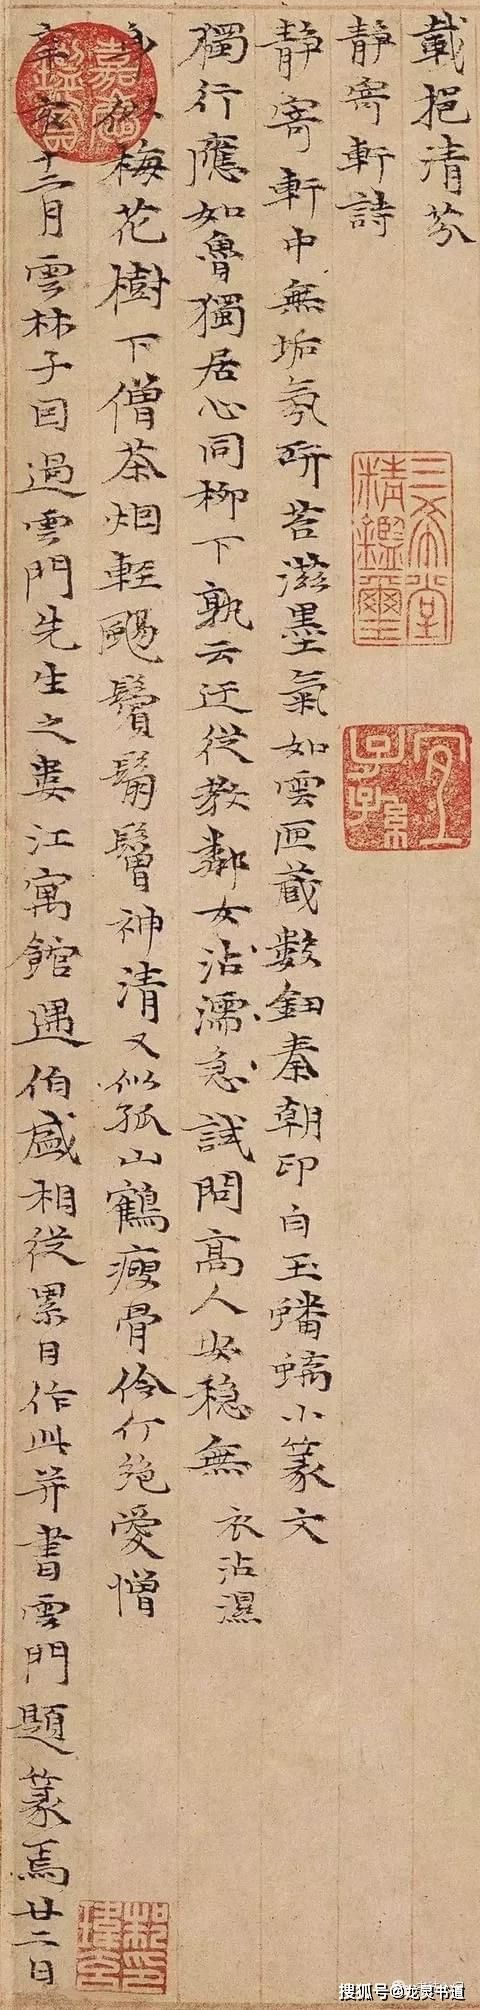 載挹清芬
靜寄軒詩
靜寄軒中無垢氛研苔滋墨氣如雲匣藏數鈕秦朝印白玉蟠螭小篆文
獨行應如魯獨居心同柳下孰云迂從教鄰女沾濡急試問高人安穩無 衣沾濕
身似梅花樹下僧茶烟輕颺鬢鬅鬙神清又似孤山鶴瘦骨伶仃絕愛憎
辛亥十二月雲林子因過雲門先生之婁江寓館遇伯盛相從累日作此并書雲門題篆焉廿二日
三希堂精鑑璽
宜子孫
嘉慶鑑賞
搜狐号@龙灵书道